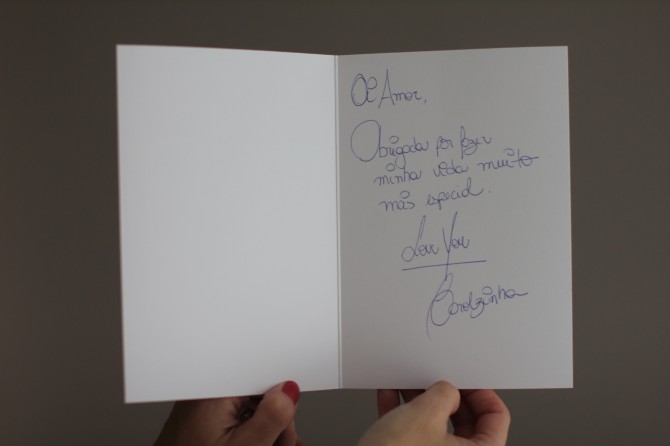 Oi Amor,
Obrigada por fazer
minha vida muito
más especial.
Love You
Carolzinha